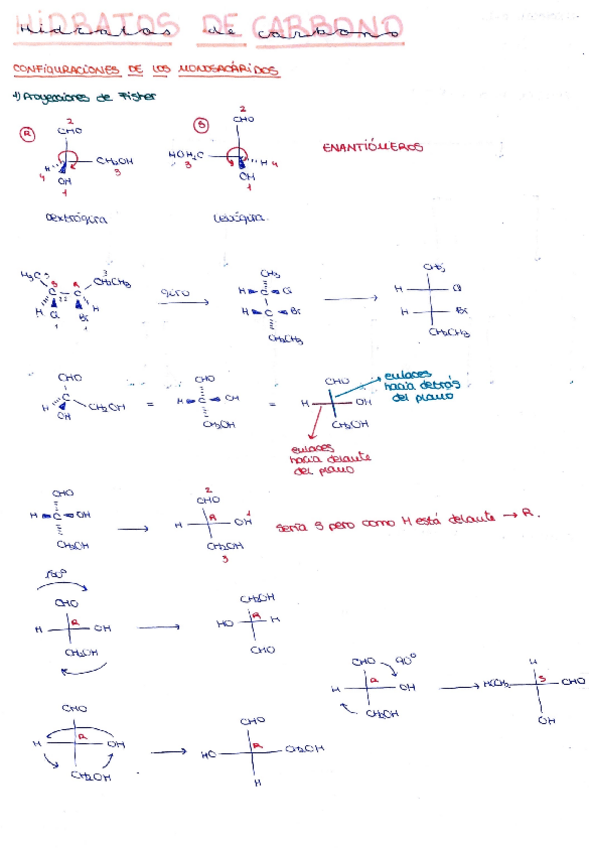 HIDRATOS DE CARBONO
Hidratos de carbono
CONFIGURACIONES DE LOS MONOSACÁRIDOS
1) Proyecciones de Fisher
R
2
CHO
CH2OH
3
H
4
OH
1
Dextrógira
S
2
CHO
HOH2C
3
H 4
OH
1
Levógira
ENANTIÓMEROS
H3C
S
R
3
CH2CH3
C
C
H
Cl
Br
H
1
1
giro
CH3
H C Cl
H C Br
CH2CH3
CH3
H Cl
H Br
CH2CH3
CHO
C
H
OH
CH2OH
=
CHO
H C OH
CH2OH
=
CHO
H OH
CH2OH
enlaces
hacia detrás
del plano
enlaces
hacia delante
del plano
CHO
H C OH
CH2OH
2
CHO
H R OH 1
CH2OH
3
Sería S pero como H está delante → R.
180º
CHO
H R OH
CH2OH
CH2OH
HO R H
CHO
CHO 90º
H R OH
CH2OH
H
S
CHO
OH
CHO
H R OH
CH2OH
CHO
HO R CH2OH
H